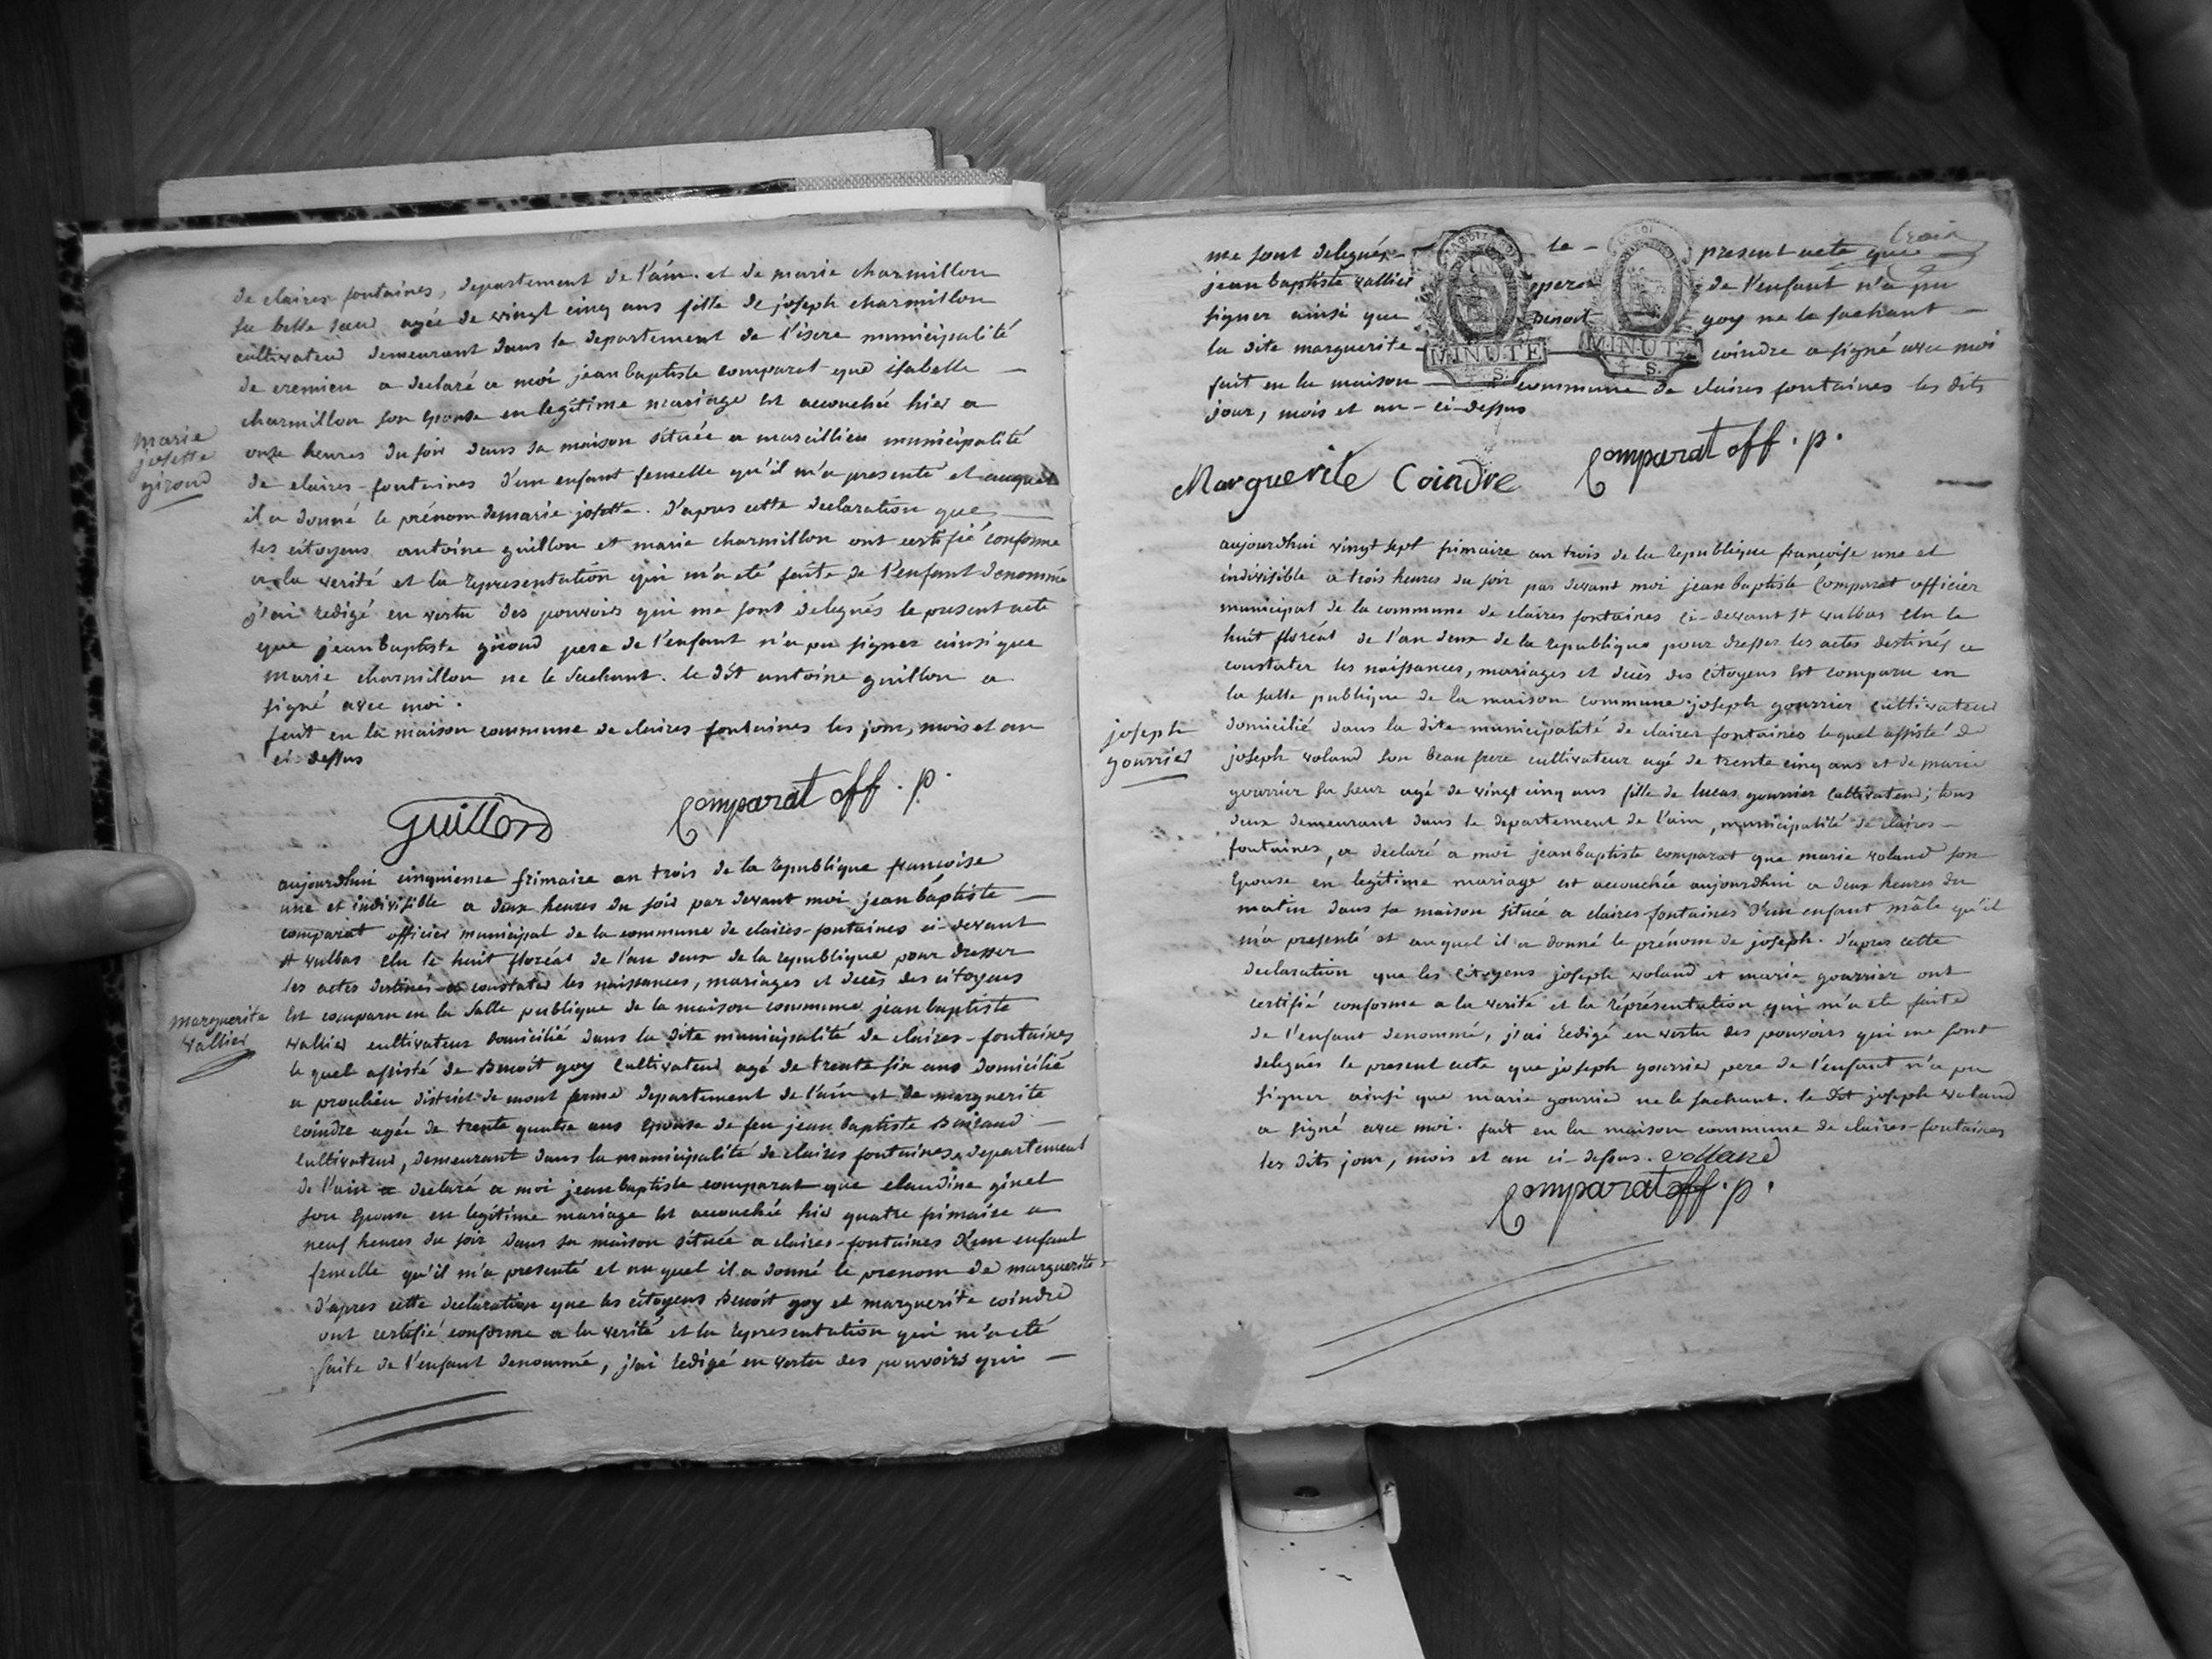 de claires-fontaines, departement de l'ain. et de marie charmillon
sa belle soeur agée de vingt cinq ans fille de joseph charmillon
cultivateur demeurant dans le departement de l'isere municipalité
de cremieu a declaré a moi jean baptiste comparat que isabelle
charmillon son epouse en legitime mariage est accouchée hier a
marie
josette
giroud
onze heures du soir dans sa maison située a marcillieu municipalité
de claires-fontaines d'un enfant femelle qu'il m'a presenté et auquel
il a donné le prénom de marie josette. d'apres cette declaration que
les citoyens antoine guillon et marie charmillon ont certifié conforme
a la verité et la representation qui m'a eté faite de l'enfant denommé
j'ai redigé en vertu des pouvoirs qui me sont delegués le present acte
que jean baptiste giroud pere de l'enfant n'a pu signer ainsi que
marie charmillon ne le sachant. le dit antoine guillon a
signé avec moi.
fait en la maison commune de claires-fontaines les jour, mois et an
ci-dessus
Guillon comparat off. p.
aujourdhui cinquieme frimaire an trois de la republique françoise
une et indivisible a deux heures du soir par devant moi jean baptiste
comparat officier municipal de la commune de claires-fontaines ci-devant
st vulbas elu le huit floréal de l'an deux de la republique pour dresser
les actes destinés a constater les naissances, mariages et decès des citoyens
marguerite
vallier
est comparu en la salle publique de la maison commune jean baptiste
vallier cultivateur domicilié dans la dite municipalité de claires-fontaines
le quel assisté de Benoit goy cultivateur agé de trente six ans domicilié
a proulieu district de mont ferme departement de l'ain et de marguerite
coindre agée de trente quatre ans epouse de feu jean baptiste
cultivateur, demeurant dans la municipalité de claires fontaines departement
de l'ain a declaré a moi jean baptiste comparat que claudine ginet
son epouse en legitime mariage est accouchée hier quatre frimaire a
neuf heures du soir dans sa maison située a claires-fontaines d'un enfant
femelle qu'il m'a presenté et au quel il a donné le prenom de marguerite
d'apres cette declaration que les citoyens Benoit goy et marguerite coindre
ont certifié conforme a la verité et la representation qui m'a eté
faite de l'enfant denommé, j'ai redigé en vertu des pouvoirs qui
trois
me sont delegués le present acte que
jean baptiste vallier pere de l'enfant n'a pu
signer ainsi que Benoit goy ne le sachant
la dite marguerite coindre a signé avec moi
MINUTE MINUTE
4 S. 4 S.
fait en la maison commune de claires fontaines les dits
jour, mois et an ci-dessus
Marguerite Coindre comparat off. p.
aujourdhui vingt sept frimaire an trois de la republique françoise une et
indivisible a trois heures du soir par devant moi jean baptiste comparat officier
municipal de la commune de claires fontaines ci-devant st vulbas elu le
huit floréal de l'an deux de la republique pour dresser les actes destinés a
constater les naissances, mariages et decès des citoyens est comparu en
la salle publique de la maison commune joseph gourrier cultivateur
joseph
gourrier
domicilié dans la dite municipalité de claires fontaines lequel assisté de
joseph voland son beau frere cultivateur agé de trente cinq ans et de marie
gourrier sa soeur agé de vingt cinq ans fille de lucas gourrier cultivateur; tous
deux demeurant dans le departement de l'ain, municipalité de claires-
fontaines, a declaré a moi jean baptiste comparat que marie voland son
epouse en legitime mariage est accouchée aujourdhui a deux heures du
matin dans sa maison située a claires-fontaines d'un enfant mâle qu'il
m'a presenté et auquel il a donné le prénom de joseph. d'apres cette
declaration que les citoyens joseph voland et marie gourrier ont
certifié conforme a la verité et la réprésentation qui m'a eté faite
de l'enfant denommé, j'ai redigé en vertu des pouvoirs qui me sont
delegués le present acte que joseph gourrier pere de l'enfant n'a pu
signer ainsi que marie gourrier ne le sachant. le dit joseph voland
a signé avec moi. fait en la maison commune de claires-fontaines
les dits jour, mois et an ci-dessus. volland
comparat off. p.